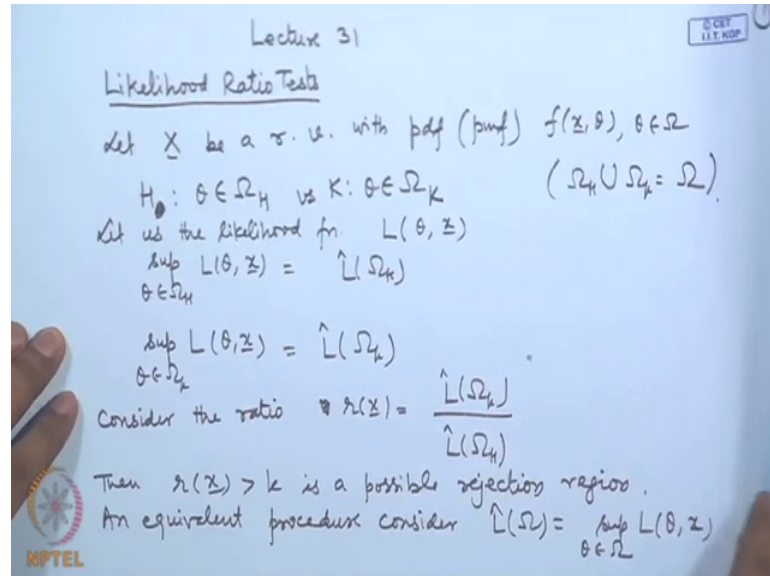 Lecture 31
© CET
I.I.T. KGP
Likelihood Ratio Tests
Let X be a r. v. with pdf (pmf) f(x, θ), θ ∈ Ω
H: θ ∈ Ω_H vs K: θ ∈ Ω_K (Ω_H ∪ Ω_K = Ω).
Let us the likelihood fn. L(θ, x)
sup L(θ, x) = L̂(Ω_H)
θ ∈ Ω_H
sup L(θ, x) = L̂(Ω_K)
θ ∈ Ω_K
Consider the ratio r(x) = L̂(Ω_K) / L̂(Ω_H)
Then r(x) > k is a possible rejection region.
An equivalent procedure consider L̂(Ω) = sup L(θ, x)
θ ∈ Ω
NPTEL